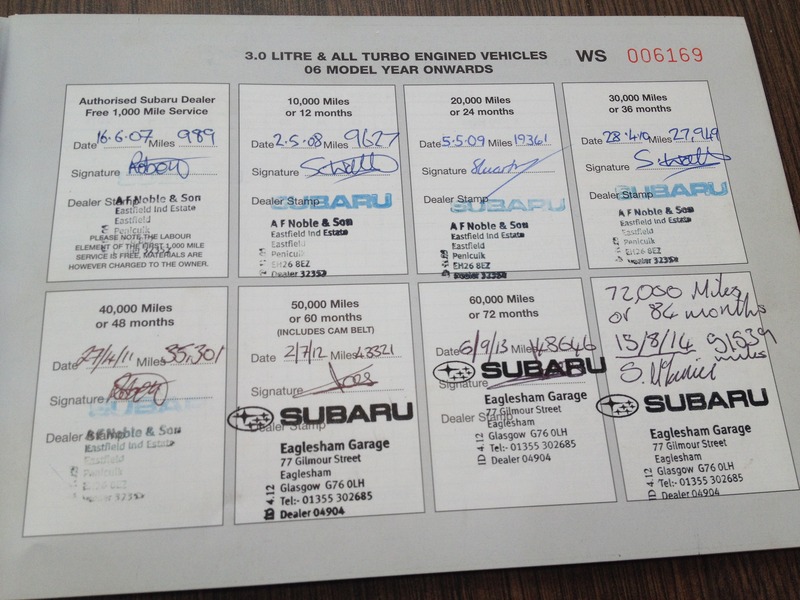 3.0 LITRE & ALL TURBO ENGINED VEHICLES
06 MODEL YEAR ONWARDS
WS 006169
Authorised Subaru Dealer
Free 1,000 Mile Service
Date 16.6.07 Miles 989
Signature
Dealer Stamp
A F Noble & Son
Eastfield Ind Estate
Eastfield
Penicuik
PLEASE NOTE THE LABOUR
ELEMENT OF THE FIRST 1,000 MILE
SERVICE IS FREE. MATERIALS ARE
HOWEVER CHARGED TO THE OWNER.
10,000 Miles
or 12 months
Date 2.5.08 Miles 9627
Signature
Dealer Stamp
SUBARU
A F Noble & Son
Eastfield Ind Estate
Eastfield
Penicuik
EH26 8EZ
Dealer 32352
20,000 Miles
or 24 months
Date 5.5.09 Miles 19361
Signature
Dealer Stamp
SUBARU
A F Noble & Son
Eastfield Ind Estate
Eastfield
Penicuik
EH26 8EZ
Dealer 32352
30,000 Miles
or 36 months
Date 28.4.10 Miles 27,949
Signature
Dealer Stamp
SUBARU
A F Noble & Son
Eastfield Ind Estate
Eastfield
Penicuik
EH26 8EZ
Dealer 32352
40,000 Miles
or 48 months
Date 27/4/11 Miles 35,301
Signature
Dealer Stamp
A F Noble & Son
Eastfield Ind Estate
Eastfield
50,000 Miles
or 60 months
(INCLUDES CAM BELT)
Date 2/7/12 Miles 43321
Signature
Dealer Stamp
SUBARU
Eaglesham Garage
77 Gilmour Street
Eaglesham
Glasgow G76 0LH
Tel:- 01355 302685
Dealer 04904
ID 4.12
60,000 Miles
or 72 months
Date 6/9/13 Miles 48646
Signature
SUBARU
Dealer Stamp
Eaglesham Garage
77 Gilmour Street
Eaglesham
Glasgow G76 0LH
Tel:- 01355 302685
Dealer 04904
ID 4.12
72,000 Miles
or 84 months
15/8/14 51539
miles
SUBARU
Eaglesham Garage
77 Gilmour Street
Eaglesham
Glasgow G76 0LH
Tel:- 01355 302685
Dealer 04904
ID 4.12